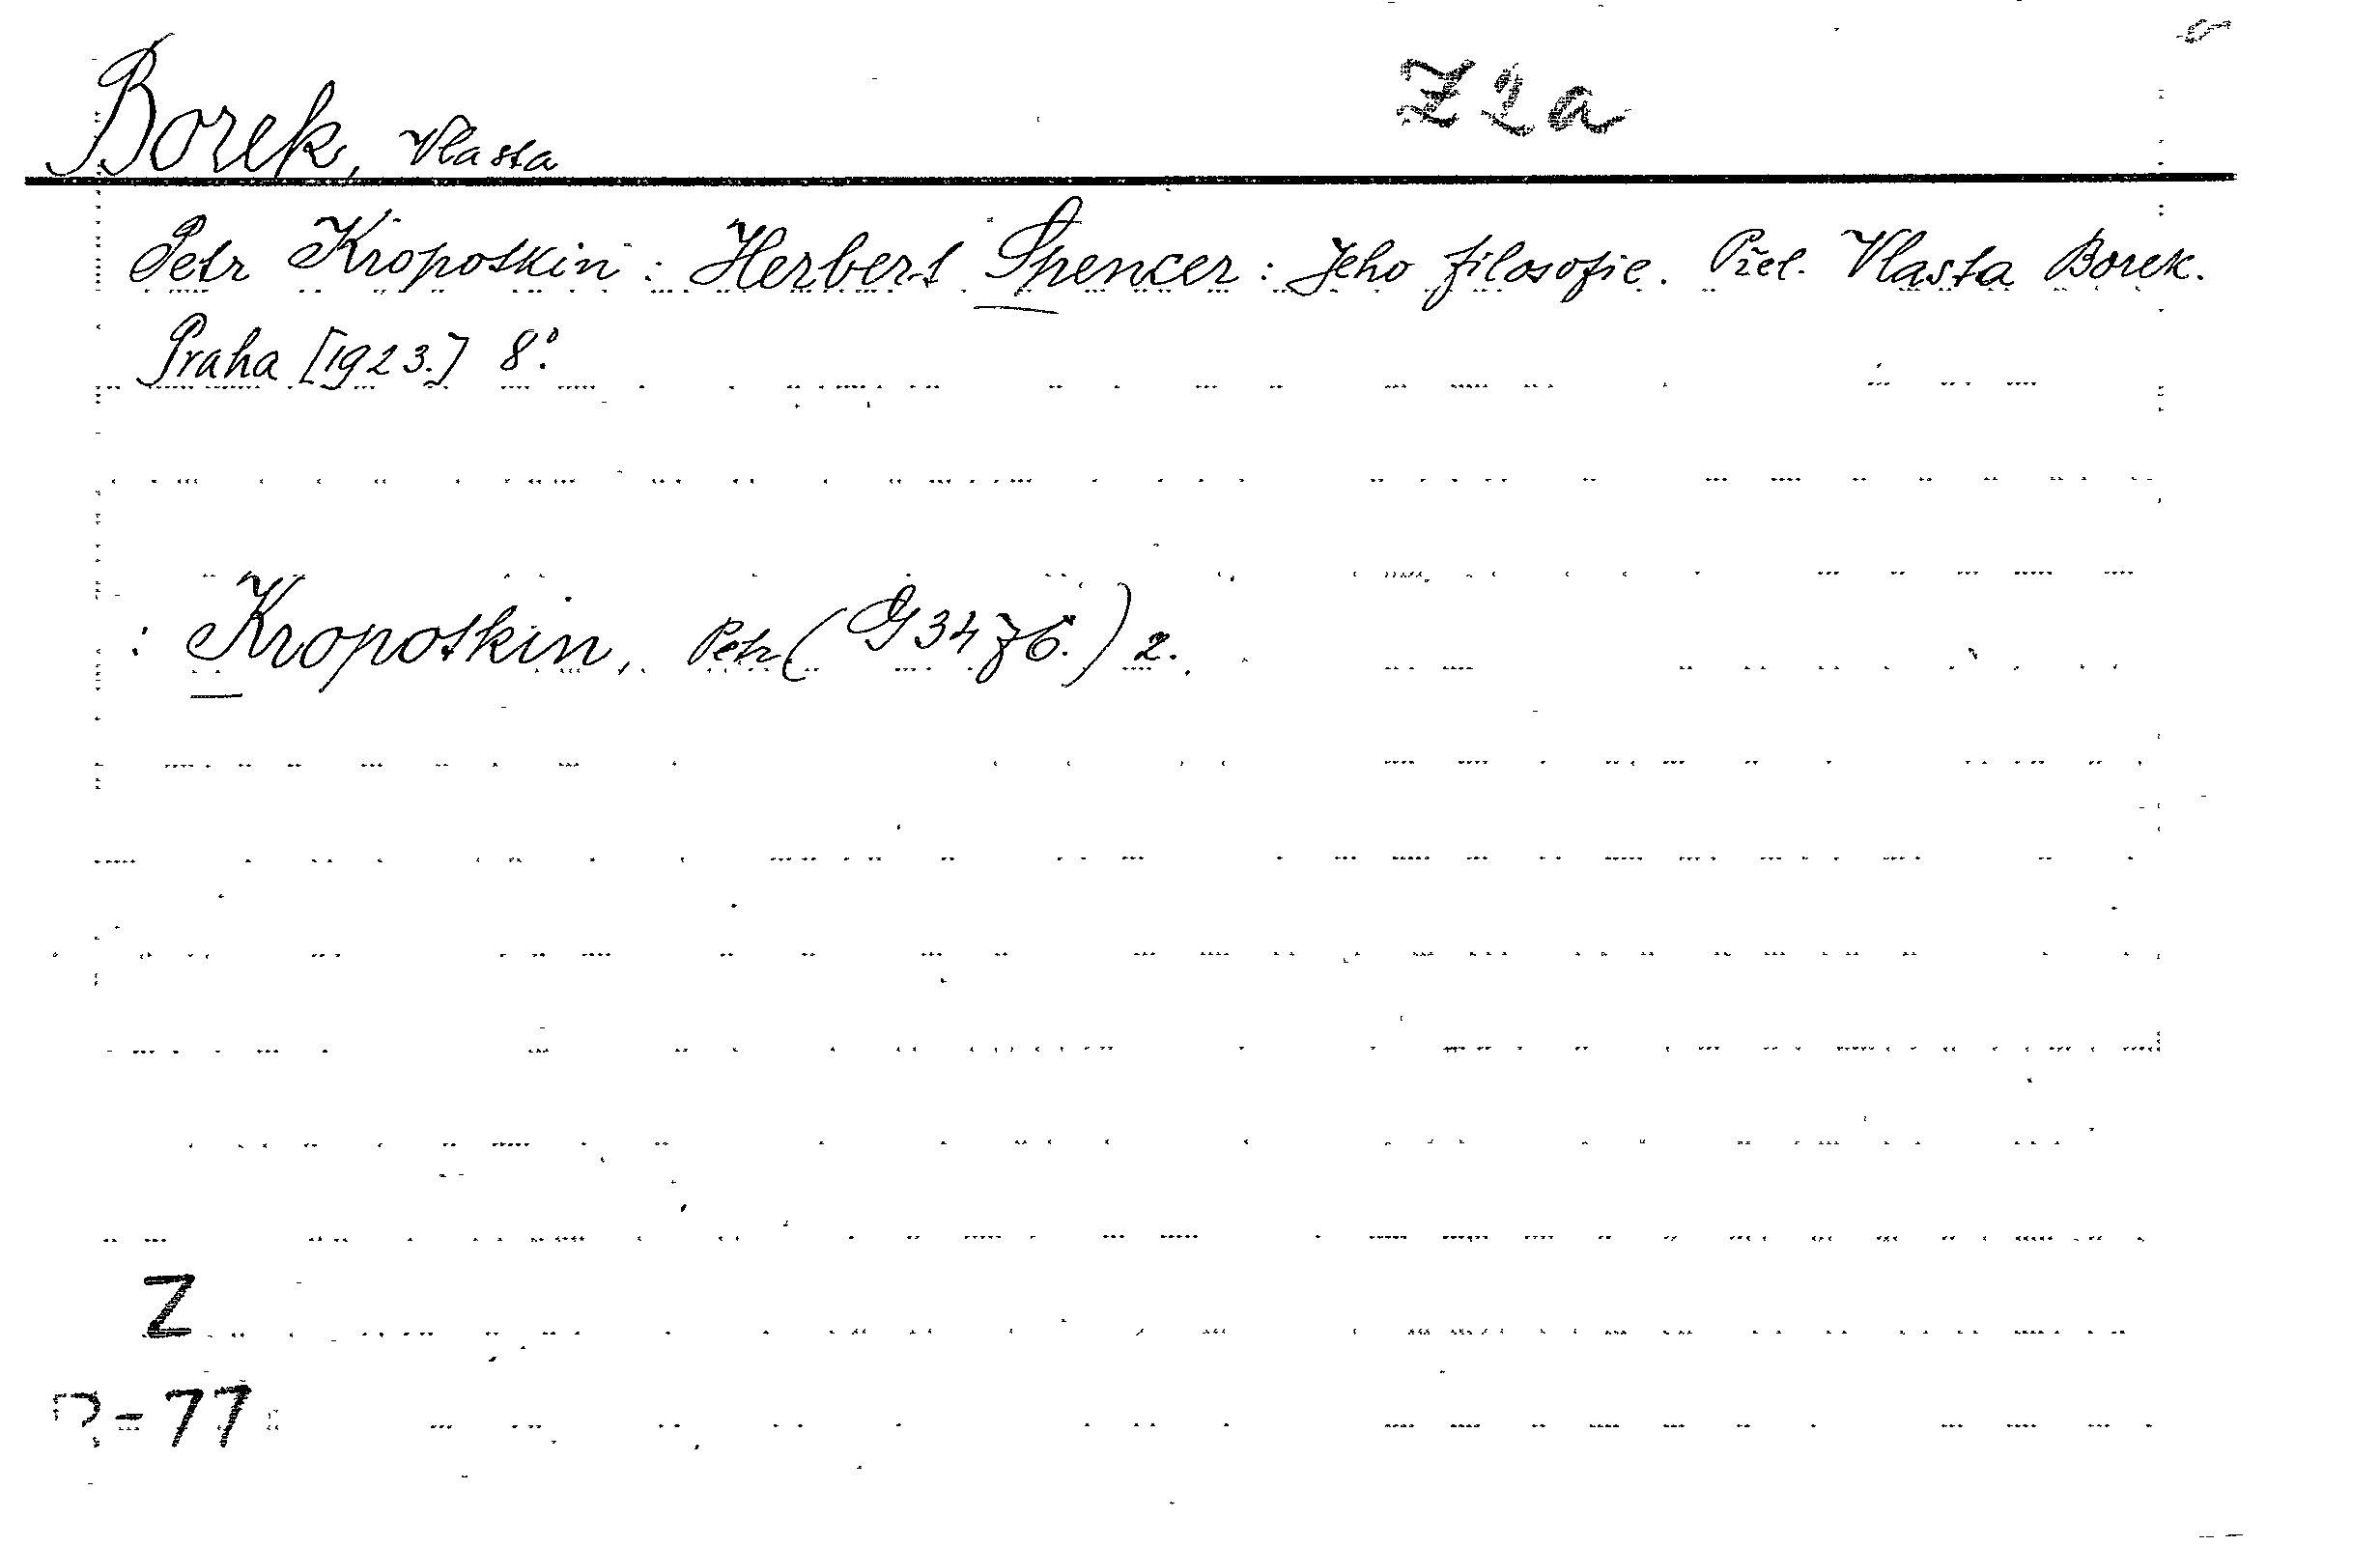 Borek, Vlasta
Z2a
Petr Kropotkin : Herbert Spencer : Jeho filosofie. Přel. Vlasta Borek.
Praha [1923.] 8°.
: Kropotkin, Petr (G 34 76.) 2.
Z
R-77